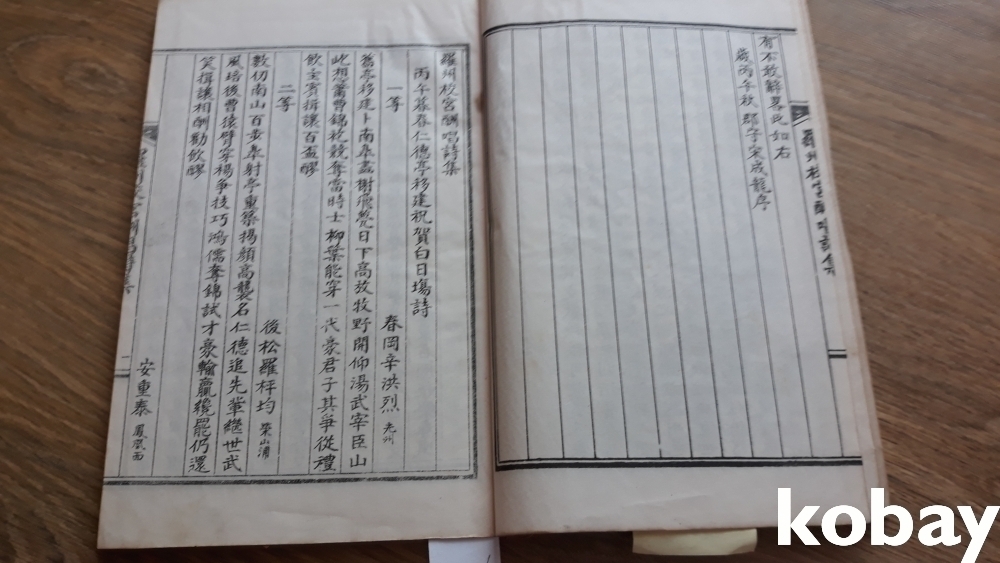 有不敢辭畧此如右
歲丙午秋郡守宋成龍序
羅州校宮酬唱詩集
羅州校宮酬唱詩集
丙午暮春仁德亭移建祝賀白日塲詩
一等
春岡辛洪烈 光州
舊亭移建卜南皐畵榭飛甍日下高放牧野開仰湯武宰臣山
此想蕭曹錦袍競奪當時士柳葉能穿一代豪君子其爭從禮
飮主賓揖讓百盃醪
二等
後松羅枰均 榮山浦
數仞南山百步奉射亭重築揚顔高襲名仁德追先輩繼世武
風培後曹猿臂穿楊爭技巧鴻儒奪錦試才豪輸贏纔罷仍還
笑揖讓相酬勸飮醪
安重泰 鳳凰面
二
kobay